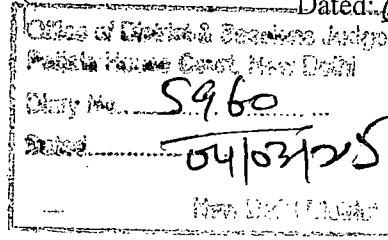 Dated:
Office of District & Sessions Judge
Patiala House Court, New Delhi
Diary No. 5960
Dated 04/03/25
New Delhi